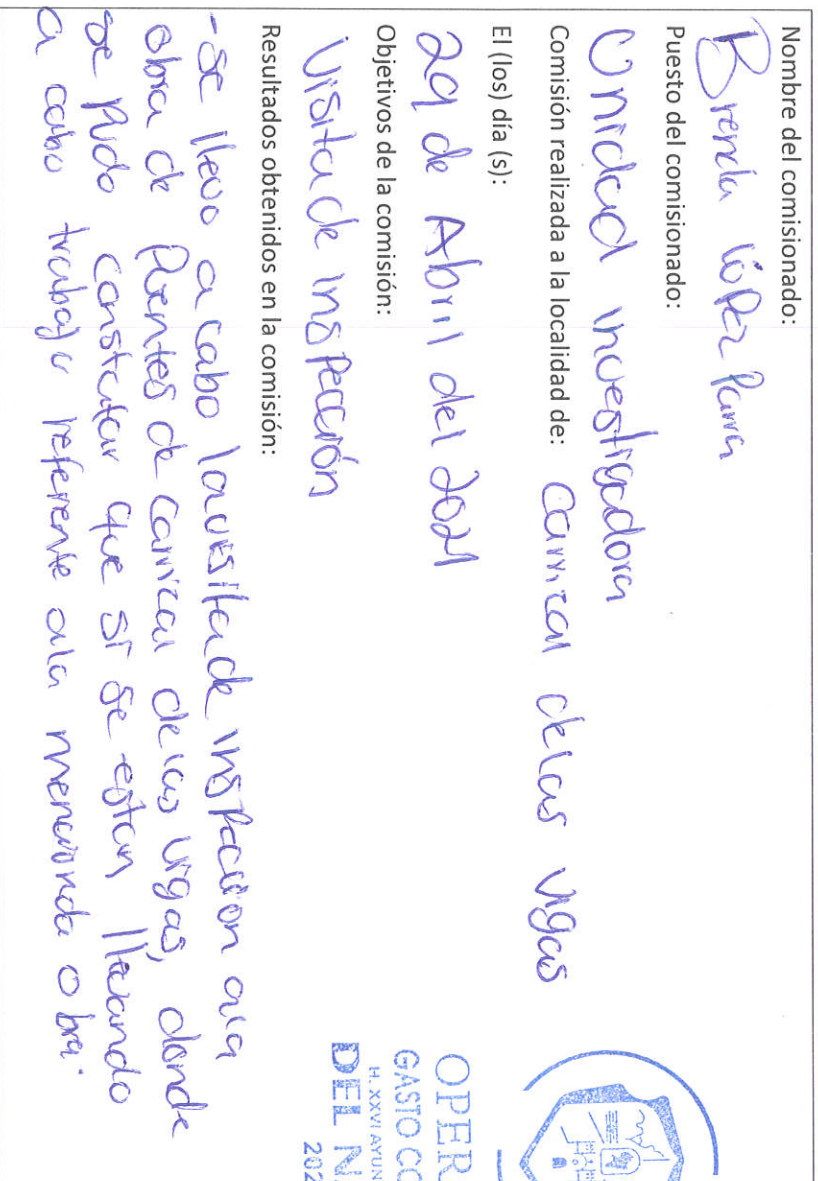 Nombre del comisionado:
Brenda López Parra
Puesto del comisionado:
Unidad investigadora
Comisión realizada a la localidad de: Carrizal de las vigas
El (los) día (s):
29 de Abril del 2021
Objetivos de la comisión:
Visita de inspección
Resultados obtenidos en la comisión:
-Se llevo a cabo la visita de inspeccion a la
obra de Puentes de Carrizal de las vigas, donde
se pudo constatar que si se estan llevando
a cabo trabajo referente a la mencionada obra.
OPER
GASTO CO
H. XXVI AYUN
DEL N
202